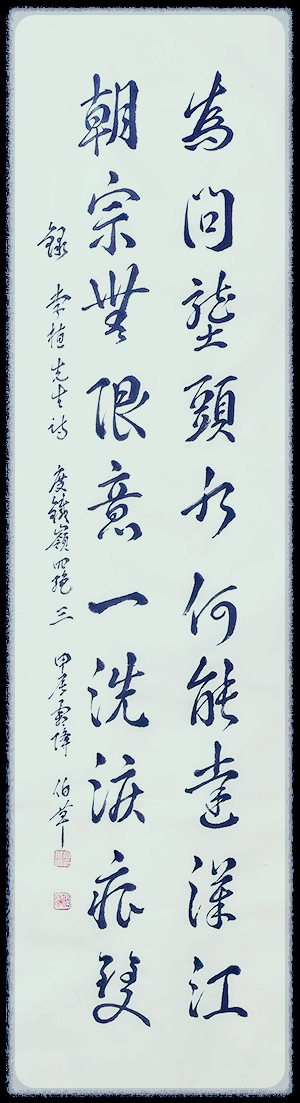 為問壟頭水何能達漢江
朝宗無限意一洗淚痕雙
錄 李植先生詩 度鐵嶺四絶 三 甲辰霜降 伯草